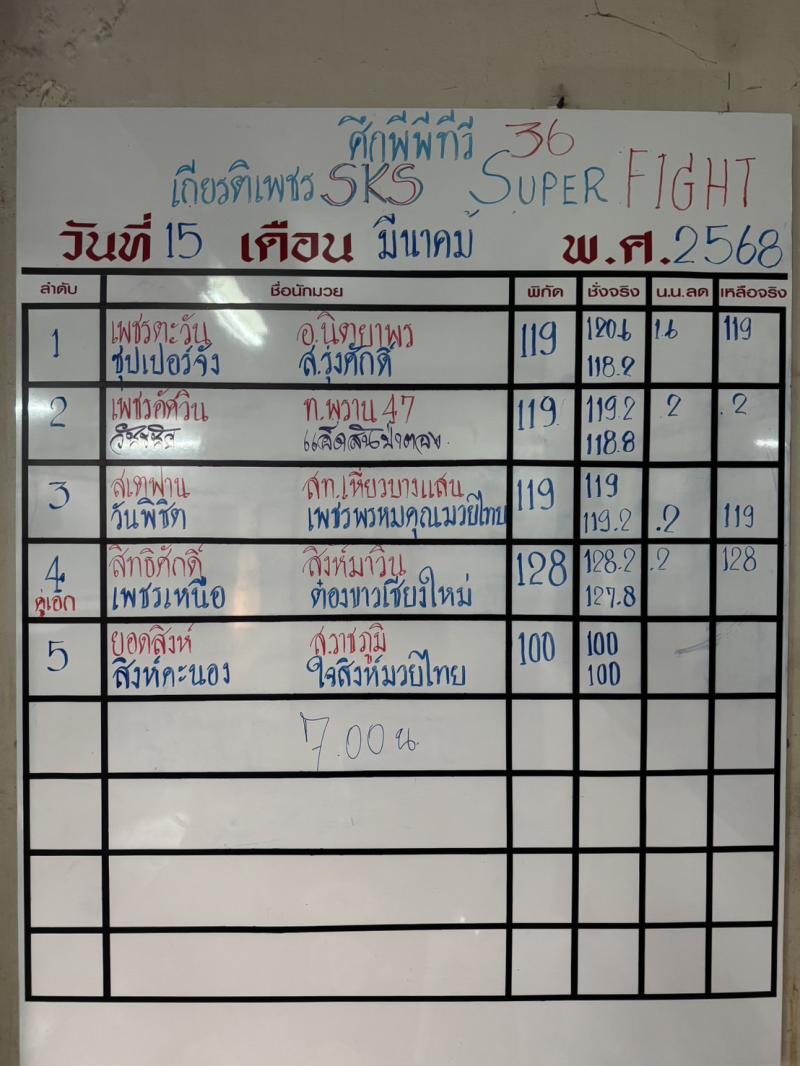 ศึกพีพีทีวี 36
เกียรติเพชร SKS SUPER FIGHT
วันที่ 15 เดือน มีนาคม พ.ศ. 2568
ลำดับ ชื่อนักมวย พิกัด ชั่งจริง น.น.ลด เหลือจริง
1 เพชรตะวัน อ.นิตยาพร 119 120.6 1.6 119
ซุปเปอร์จัง ส.รุ่งศักดิ์ 118.2
2 เพชรอัศวิน ท.พราน 47 119 119.2 .2 .2
118.8
3 สเตฟาน สท.เหี่ยวบางแสน 119 119
วันพิชิต เพชรพรหมคุณมวยไทย 119.2 .2 119
4 สิทธิศักดิ์ สิงห์มาวิน 128 128.2 .2 128
คู่เอก เพชรเหนือ ต๋องขาวเชียงใหม่ 127.8
5 ยอดสิงห์ ส.ราชภูมิ 100 100
สิงห์คะนอง ใจสิงห์มวยไทย 100
7.00 น.